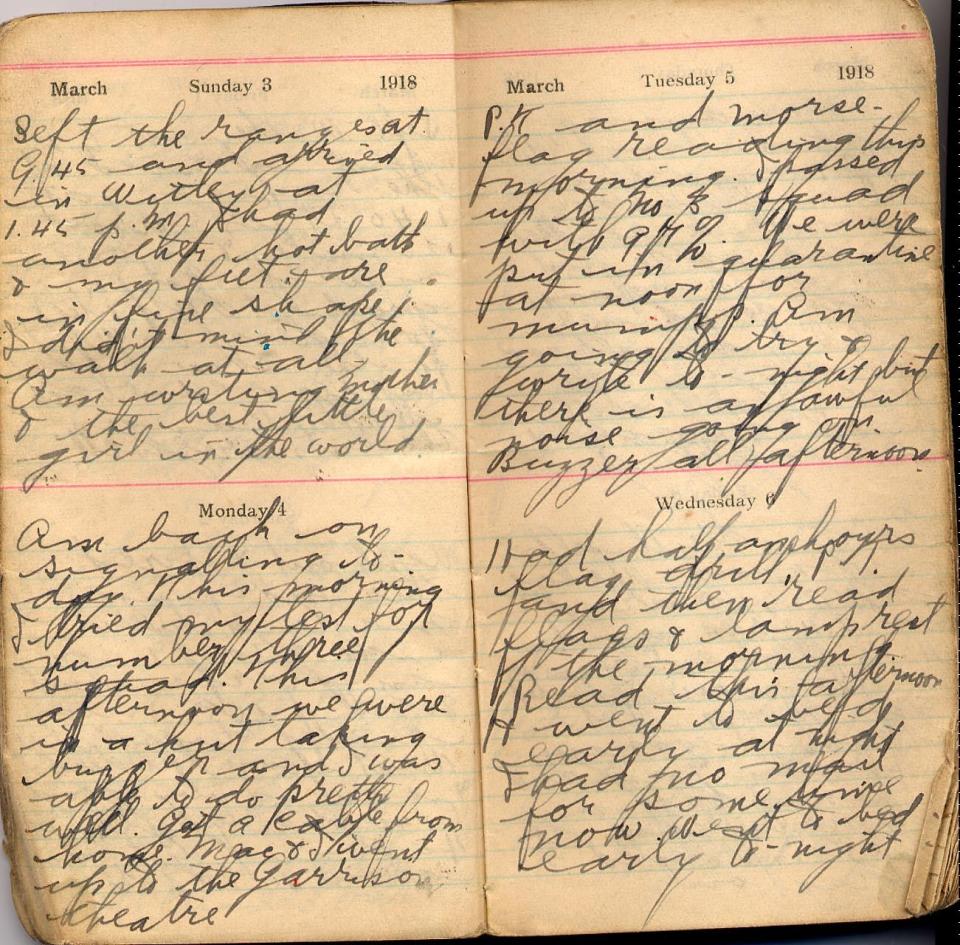 March Sunday 3 1918
Left the ranges at
9.45 and arrived
in Witley at
1.45 p.m. I had
another hot bath
& my feet are
in fine shape.
I didn't mind the
walk at all.
Am writing mother
& the best little
girl in the world.
Monday 4
Am back on
signalling to-
day. This morning
I tried my test for
number three
squad. This
afternoon we were
in a hut taking
buzzer and I was
able to do pretty
well. Got a cable from
home. Mac & I went
up to the Garrison
theatre
March Tuesday 5 1918
P.T. and morse-
flag reading this
morning. I passed
up to No 3 squad
with 97%. We were
put in quarantine
at noon for
mumps. Am
going to try &
write to-night but
there is an awful
noise going on
Buzzer all afternoon
Wednesday 6
Had half an hours
flag drill
and then read
flags & lamp rest
of the morning.
Read this afternoon
& went to bed
early at night
I had no mail
for some time
now. Went to bed
early to-night